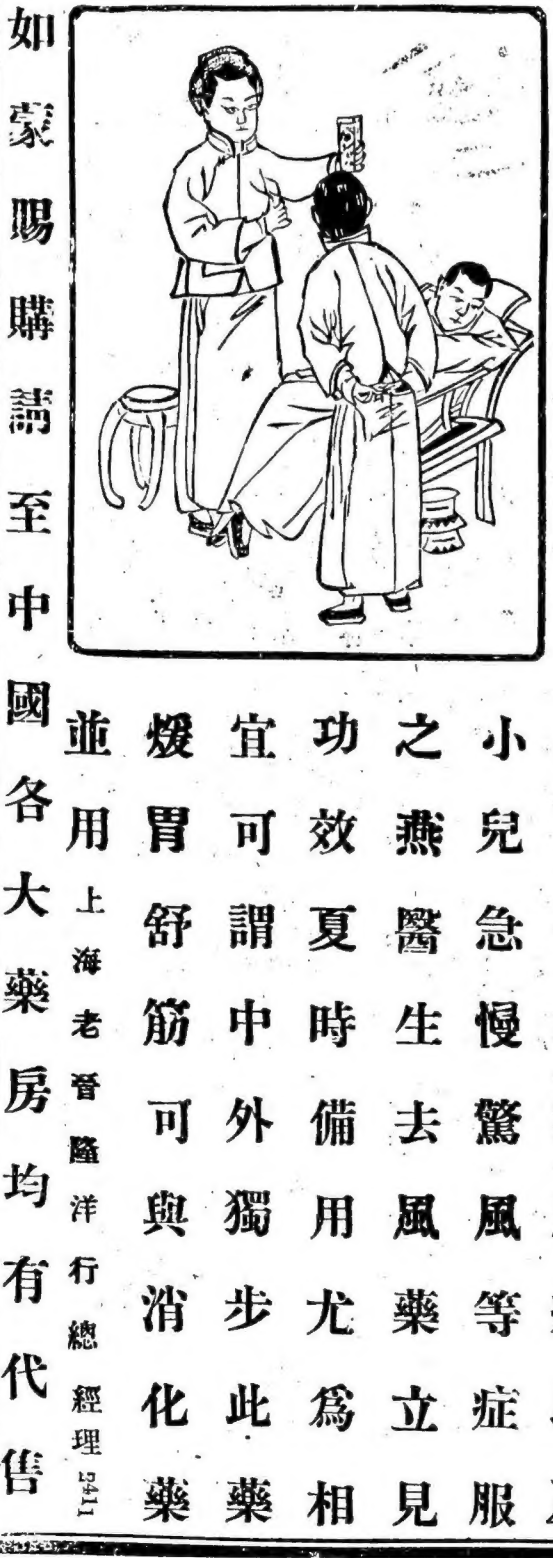 小兒急慢驚風等症服
之燕醫生去風藥立見
功效夏時備用尤爲相
宜可謂中外獨步此藥
煖胃舒筋可與消化藥
並用 上海老晉隆洋行總經理 2411
如蒙賜購請至中國各大藥房均有代售